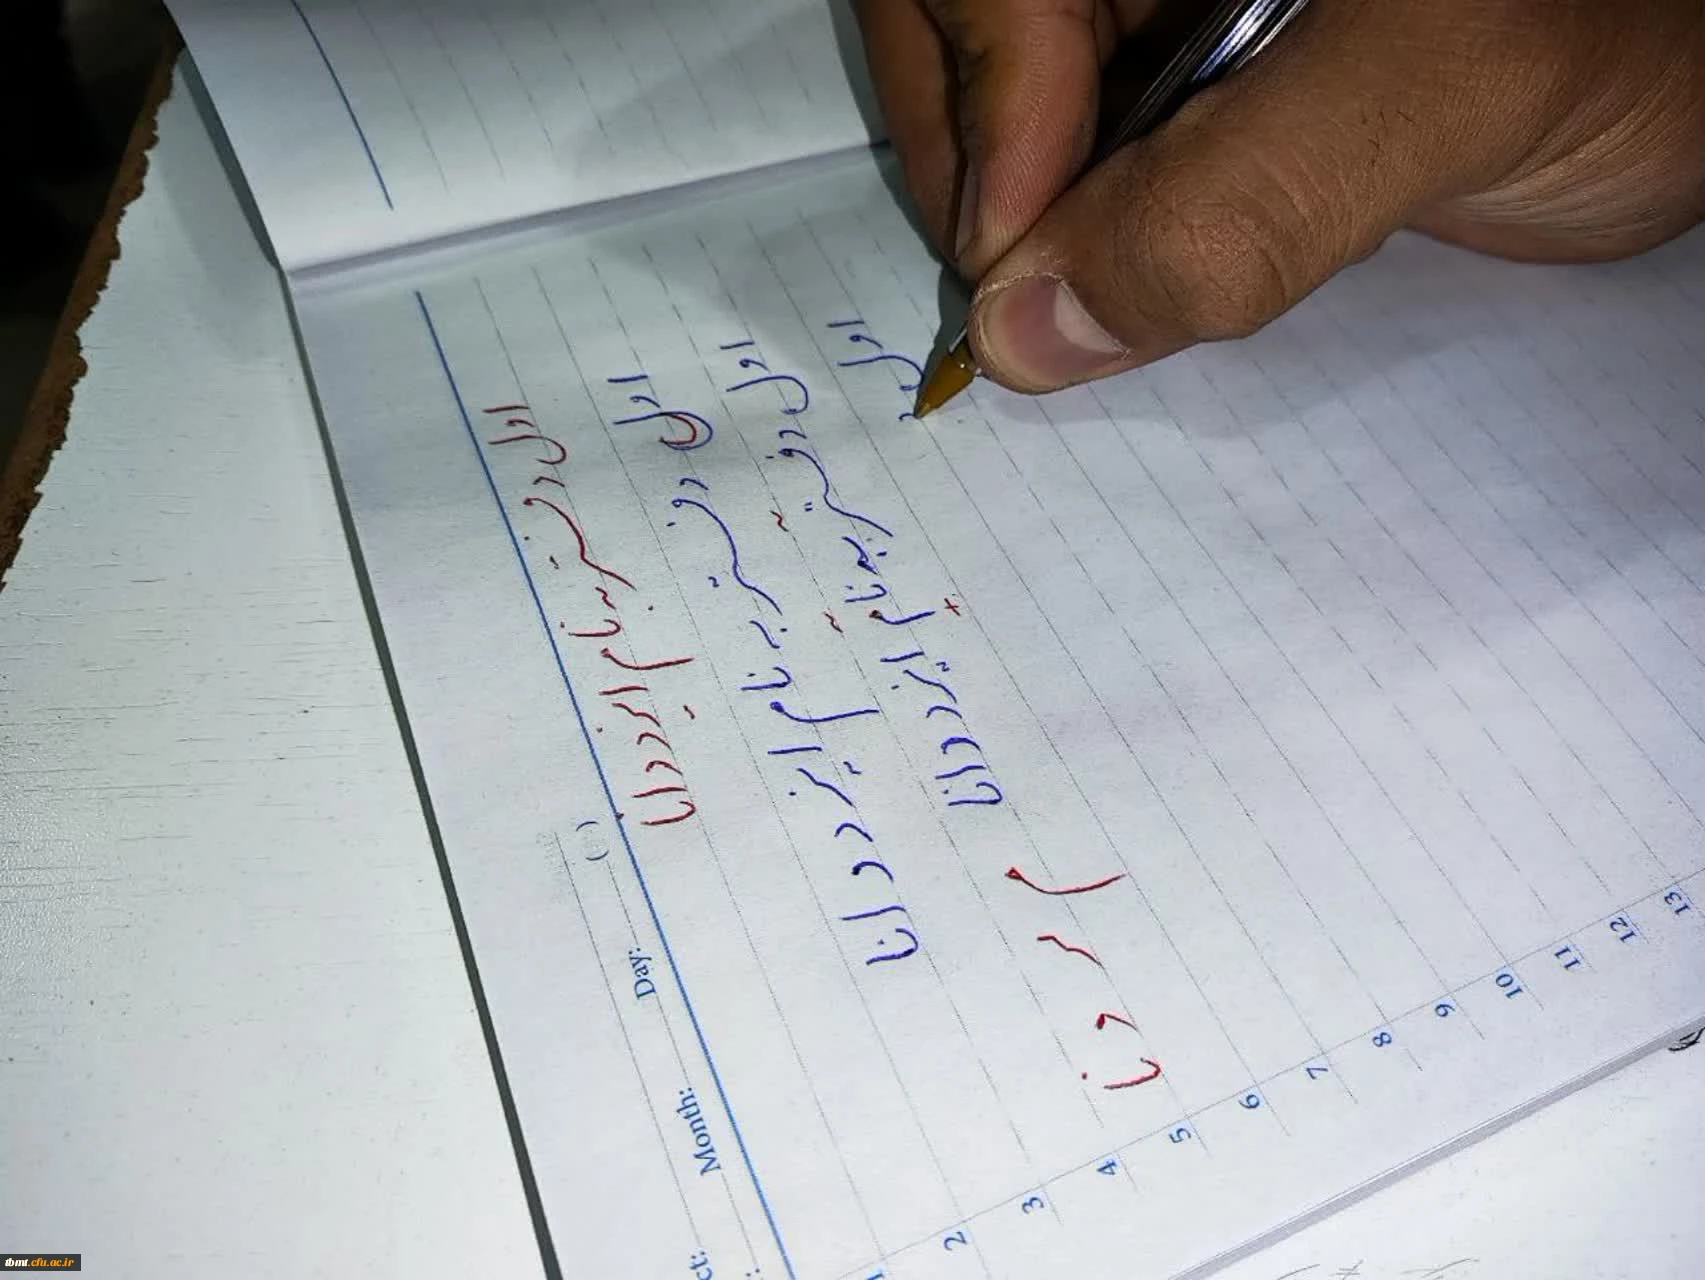 اول دفتر بنام ایزد دانا
اول دفتر به نام ایزد دانا
اول دفتر بهنام ایزد دانا
اول د
م ر د نا
Day:
Month:
( )
1
2
3
4
5
6
7
8
9
10
11
12
13
tbmt.cfu.ac.ir